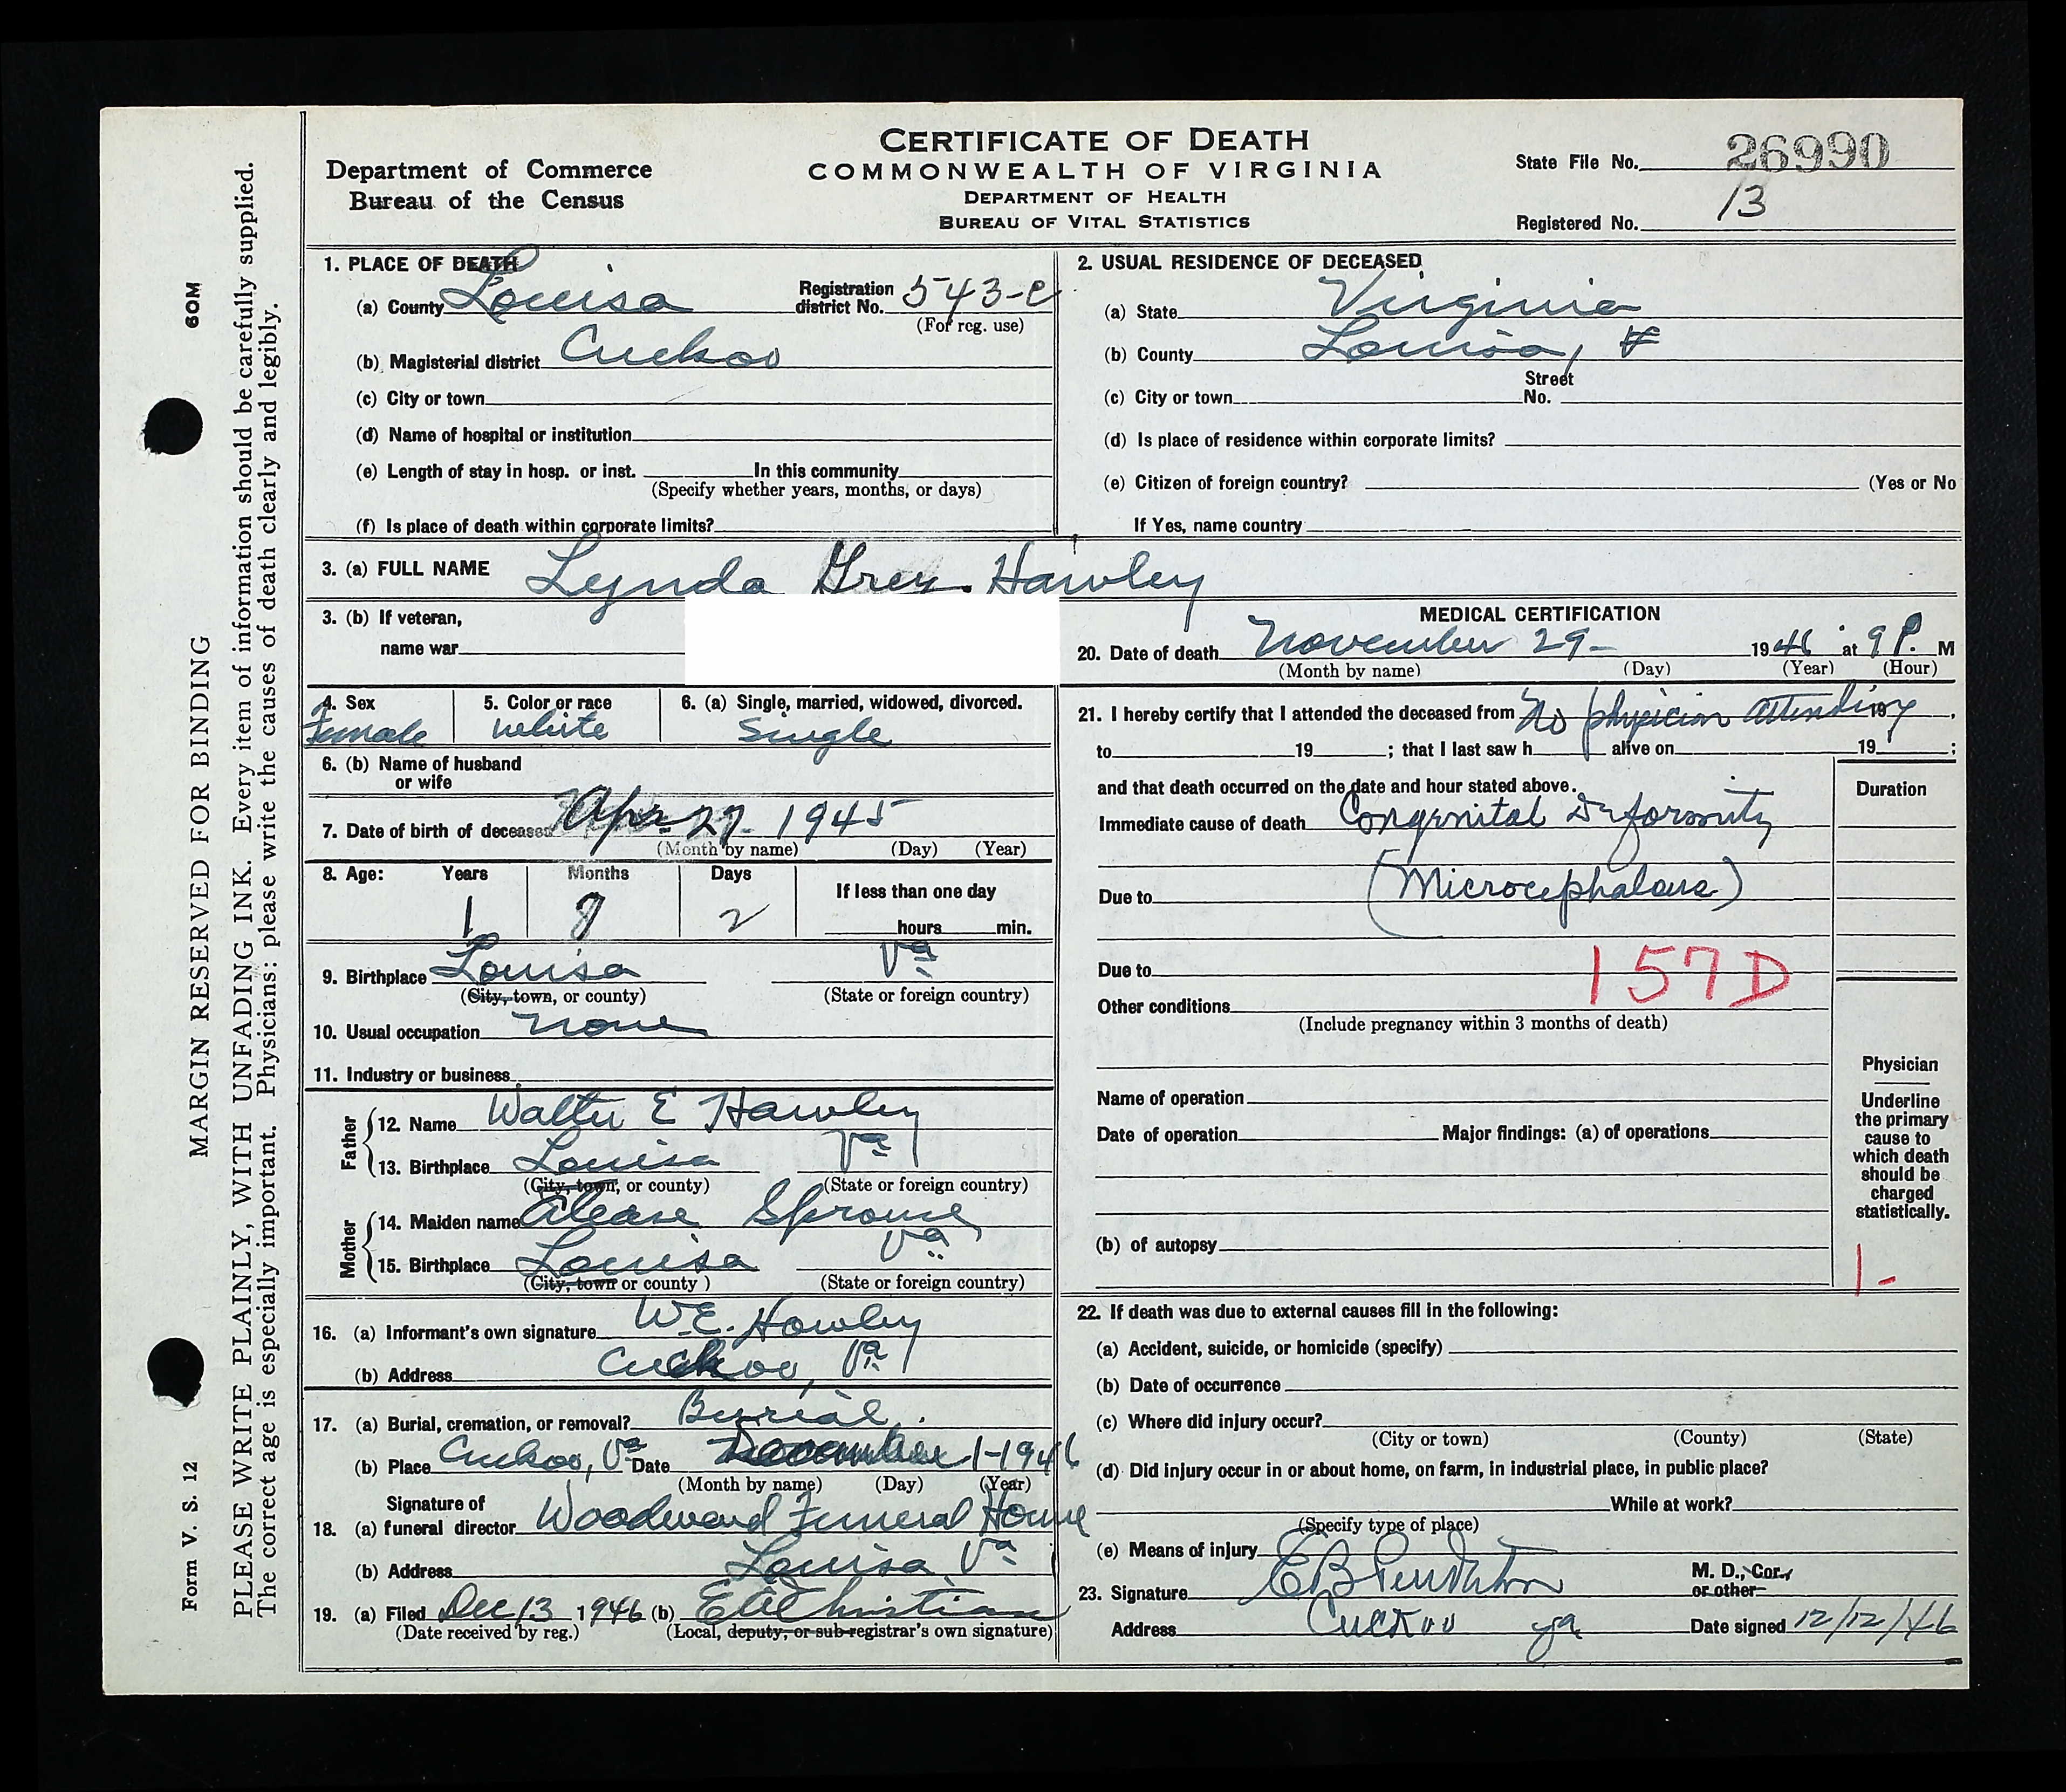 CERTIFICATE OF DEATH
COMMONWEALTH OF VIRGINIA
DEPARTMENT OF HEALTH
BUREAU OF VITAL STATISTICS
Department of Commerce
Bureau of the Census
State File No. 26990
Registered No. 13
60M
MARGIN RESERVED FOR BINDING
Form V. S. 12
PLEASE WRITE PLAINLY, WITH UNFADING INK. Every item of information should be carefully supplied.
The correct age is especially important. Physicians: please write the causes of death clearly and legibly.
1. PLACE OF DEATH
(a) County Louisa Registration district No. 543-C
(For reg. use)
(b) Magisterial district Cuckoo
(c) City or town
(d) Name of hospital or institution
(e) Length of stay in hosp. or inst. In this community
(Specify whether years, months, or days)
(f) Is place of death within corporate limits?
2. USUAL RESIDENCE OF DECEASED
(a) State Virginia
(b) County Louisa,
(c) City or town Street No.
(d) Is place of residence within corporate limits?
(e) Citizen of foreign country? (Yes or No
If Yes, name country
3. (a) FULL NAME Lynda Grey Hawley
3. (b) If veteran,
name war
4. Sex Female
5. Color or race white
6. (a) Single, married, widowed, divorced. Single
6. (b) Name of husband
or wife
7. Date of birth of deceased Apr. 27 - 1945
(Month by name) (Day) (Year)
8. Age: Years Months Days If less than one day
1 2 hours min.
9. Birthplace Louisa Va
(City, town, or county) (State or foreign country)
10. Usual occupation none
11. Industry or business
Father
12. Name Walter E Hawley
13. Birthplace Louisa Va
(City, town, or county) (State or foreign country)
Mother
14. Maiden name Alease Sprouse
15. Birthplace Louisa Va
(City, town or county ) (State or foreign country)
16. (a) Informant's own signature W.E. Hawley
(b) Address Cuckoo, Va
17. (a) Burial, cremation, or removal? Burial
(b) Place Cuckoo, Va Date December 1-1946
(Month by name) (Day) (Year)
Signature of
18. (a) funeral director Woodward Funeral Home
(b) Address Louisa, Va
19. (a) Filed Dec 13 1946 (b) Christian
(Date received by reg.) (Local, deputy, or sub-registrar's own signature)
MEDICAL CERTIFICATION
20. Date of death November 29 - 1946 at 9 P. M
(Month by name) (Day) (Year) (Hour)
21. I hereby certify that I attended the deceased from No physician attending 19 ,
to 19 ; that I last saw h alive on 19 ;
and that death occurred on the date and hour stated above.
Duration
Immediate cause of death Congenital Deformity
Due to (Microcephalous)
Due to
157D
Other conditions
(Include pregnancy within 3 months of death)
Name of operation
Date of operation Major findings: (a) of operations
(b) of autopsy
Physician
Underline
the primary
cause to
which death
should be
charged
statistically.
1-
22. If death was due to external causes fill in the following:
(a) Accident, suicide, or homicide (specify)
(b) Date of occurrence
(c) Where did injury occur?
(City or town) (County) (State)
(d) Did injury occur in or about home, on farm, in industrial place, in public place?
While at work?
(Specify type of place)
(e) Means of injury
23. Signature E B Pendleton M. D., Cor., or other
Address Cuckoo Va Date signed 12/12/46